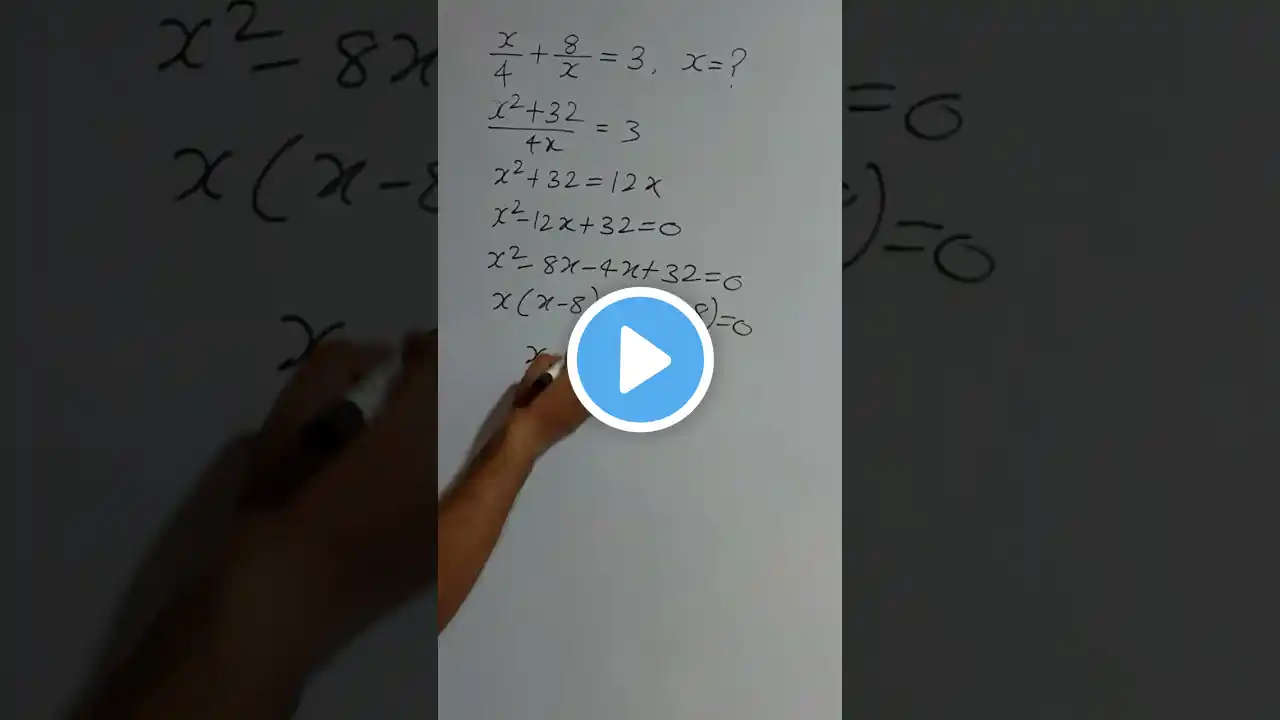 x/4 + 8/x = 3, x=?
x²+32/4x = 3
x²+32=12x
x²-12x+32=0
x²-8x-4x+32=0
x(x-8) 8)=0
x